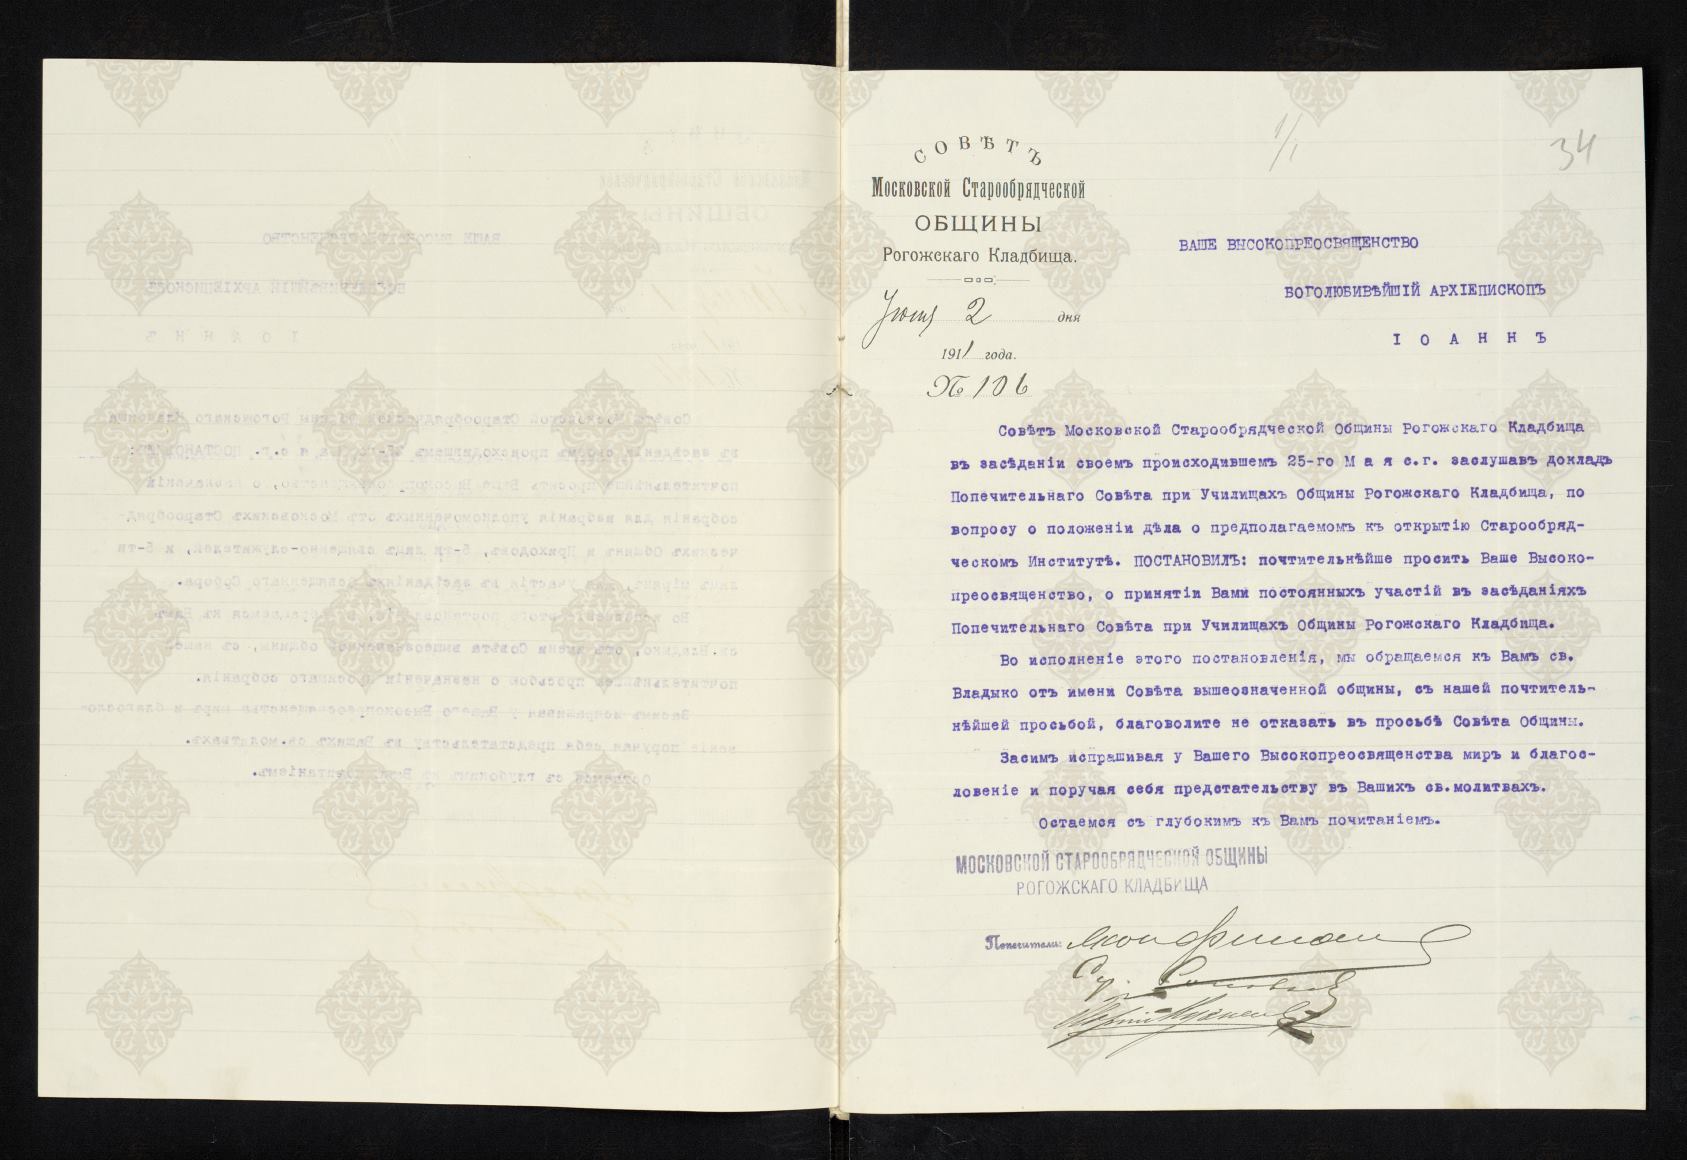 СОВѢТЪ
Московской Старообрядческой
ОБЩИНЫ
Рогожскаго Кладбища.
Іюня 2 дня
1911 года.
№ 106
1/1
34
ВАШЕ ВЫСОКОПРЕОСВЯЩЕНСТВО
БОГОЛЮБИВѢЙШІЙ АРХІЕПИСКОПЪ
І О А Н Н Ъ
Совѣтъ Московской Старообрядческой Общины Рогожскаго Кладбища
въ засѣданіи своемъ происходившемъ 25-го М а я с.г. заслушавъ докладъ
Попечительнаго Совѣта при Училищахъ Общины Рогожскаго Кладбища, по
вопросу о положеніи дѣла о предполагаемомъ къ открытію Старообряд-
ческомъ Институтѣ. ПОСТАНОВИЛЪ: почтительнѣйше просить Ваше Высоко-
преосвященство, о принятіи Вами постоянныхъ участій въ засѣданіяхъ
Попечительнаго Совѣта при Училищахъ Общины Рогожскаго Кладбища.
Во исполненіе этого постановленія, мы обращаемся къ Вамъ св.
Владыко отъ имени Совѣта вышеозначенной общины, съ нашей почтитель-
нѣйшей просьбой, благоволите не отказать въ просьбѣ Совѣта Общины.
Засимъ испрашивая у Вашего Высокопреосвященства миръ и благос-
ловеніе и поручая себя предстательству въ Вашихъ св.молитвахъ.
Остаемся съ глубокимъ къ Вамъ почитаніемъ.
МОСКОВСКОЙ СТАРООБРЯДЧЕСКОЙ ОБЩИНЫ
РОГОЖСКАГО КЛАДБИЩА
Попечители: